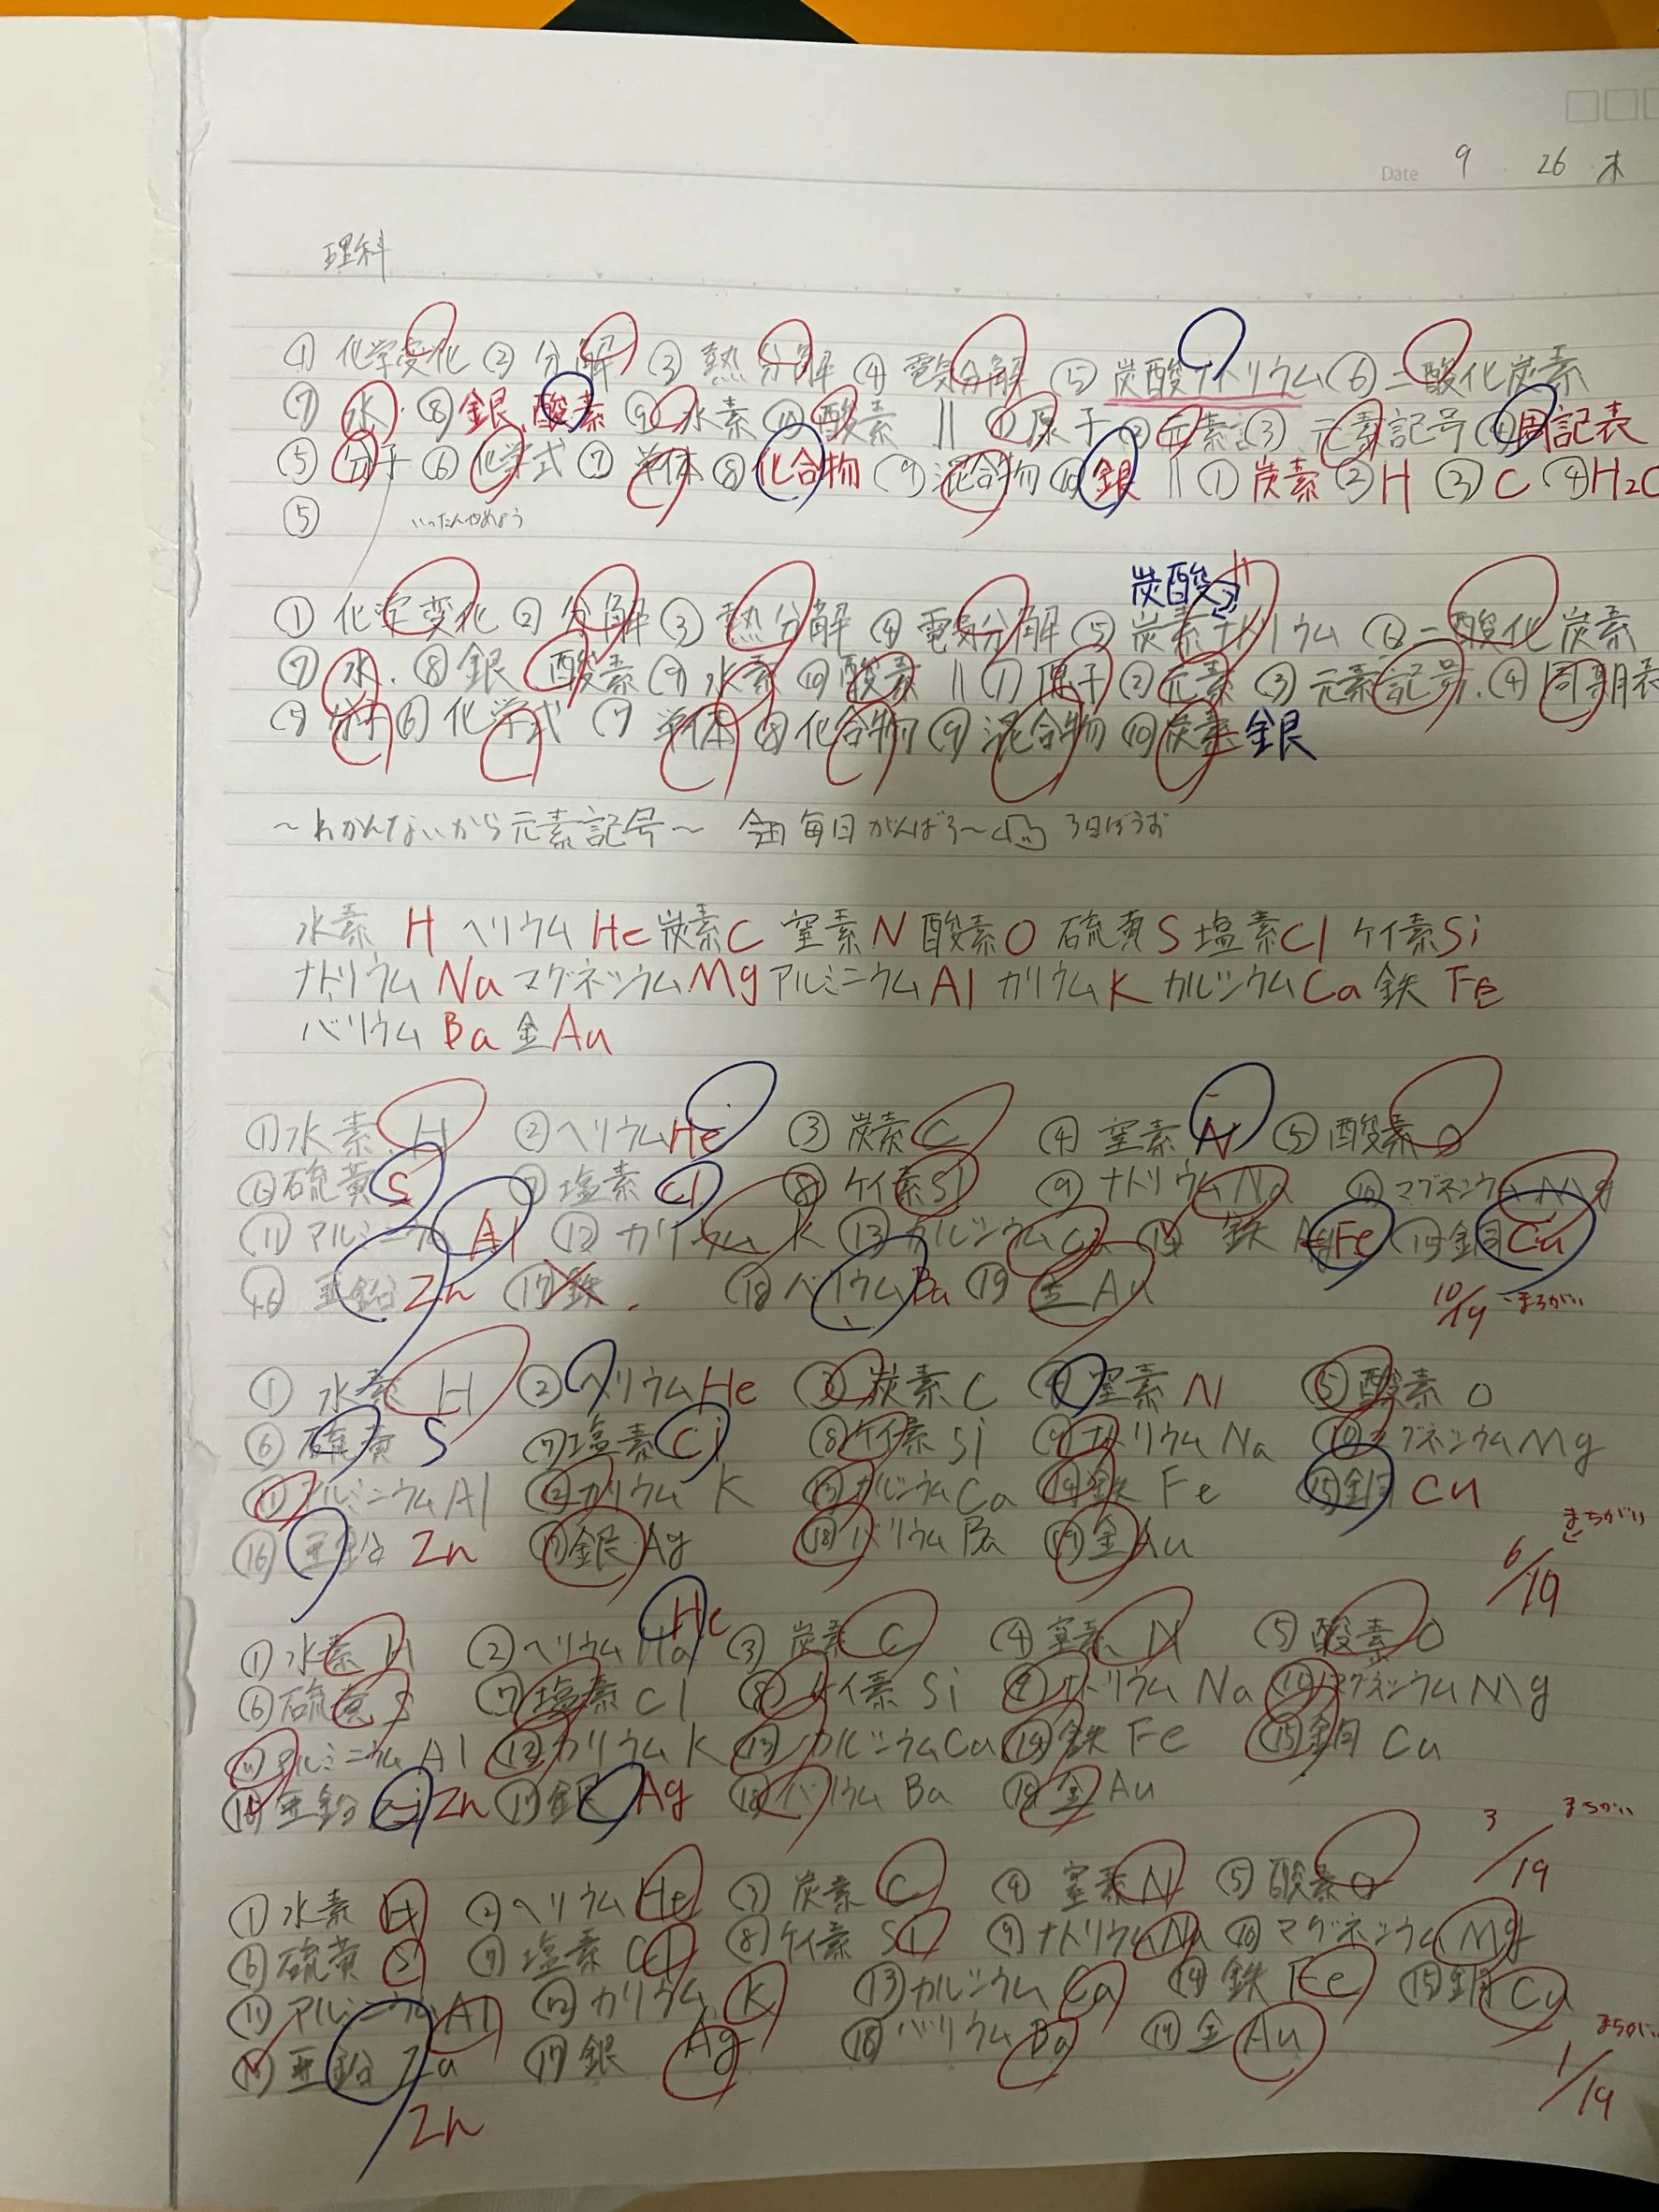 Date 9 · 26 木
理科
① 化学変化 ② 分解 ③ 熱分解 ④ 電気分解 ⑤ 炭酸ナトリウム ⑥ 二酸化炭素
⑦ 水 ⑧ 銀、酸素 ⑨ 水素 ⑩ 酸素 || ① 原子 ② 元素 ③ 元素記号 ④ 周記表
⑤ 分子 ⑥ 化学式 ⑦ 単体 ⑧ 化合物 ⑨ 混合物 ⑩ 銀 || ① 炭素 ② H ③ C ④ H2O
⑤ いったんやめよう
炭酸
① 化学変化 ② 分解 ③ 熱分解 ④ 電気分解 ⑤ 炭素ナトリウム ⑥ 二酸化炭素
⑦ 水 ⑧ 銀 酸素 ⑨ 水素 ⑩ 酸素 || ① 原子 ② 元素 ③ 元素記号 ④ 周期表
⑤ 分子 ⑥ 化学式 ⑦ 単体 ⑧ 化合物 ⑨ 混合物 ⑩ 炭素 銀
〜わかんないから元素記号〜 毎日がんばろ〜 3日ぼうず
水素 H ヘリウム He 炭素 C 窒素 N 酸素 O 硫黄 S 塩素 Cl ケイ素 Si
ナトリウム Na マグネシウム Mg アルミニウム Al カリウム K カルシウム Ca 鉄 Fe
バリウム Ba 金 Au
① 水素 H ② ヘリウム He ③ 炭素 C ④ 窒素 N ⑤ 酸素 O
⑥ 硫黄 S ⑦ 塩素 Cl ⑧ ケイ素 Si ⑨ ナトリウム Na ⑩ マグネシウム Mg
⑪ アルミニウム Al ⑫ カリウム K ⑬ カルシウム Ca ⑭ 鉄 Fe ⑮ 銅 Cu
⑯ 亜鉛 Zn ⑰ 鉄 ⑱ バリウム Ba ⑲ 金 Au
10/19 まちがい
① 水素 H ② ヘリウム He ③ 炭素 C ④ 窒素 N ⑤ 酸素 O
⑥ 硫黄 S ⑦ 塩素 Cl ⑧ ケイ素 Si ⑨ ナトリウム Na ⑩ マグネシウム Mg
⑪ アルミニウム Al ⑫ カリウム K ⑬ カルシウム Ca ⑭ 鉄 Fe ⑮ 銅 Cu
⑯ 亜鉛 Zn ⑰ 銀 Ag ⑱ バリウム Ba ⑲ 金 Au
6/19 まちがい
He
① 水素 H ② ヘリウム Ha ③ 炭素 C ④ 窒素 N ⑤ 酸素 O
⑥ 硫黄 S ⑦ 塩素 Cl ⑧ ケイ素 Si ⑨ ナトリウム Na ⑩ マグネシウム Mg
⑪ アルミニウム Al ⑫ カリウム K ⑬ カルシウム Ca ⑭ 鉄 Fe ⑮ 銅 Cu
⑯ 亜鉛 Zn ⑰ 銀 Ag ⑱ バリウム Ba ⑲ 金 Au
3/19 まちがい
① 水素 H ② ヘリウム He ③ 炭素 C ④ 窒素 N ⑤ 酸素 O
⑥ 硫黄 S ⑦ 塩素 Cl ⑧ ケイ素 Si ⑨ ナトリウム Na ⑩ マグネシウム Mg
⑪ アルミニウム Al ⑫ カリウム K ⑬ カルシウム Ca ⑭ 鉄 Fe ⑮ 銅 Cu
⑯ 亜鉛 Za ⑰ 銀 Ag ⑱ バリウム Ba ⑲ 金 Au
Zn
1/19 まちがい